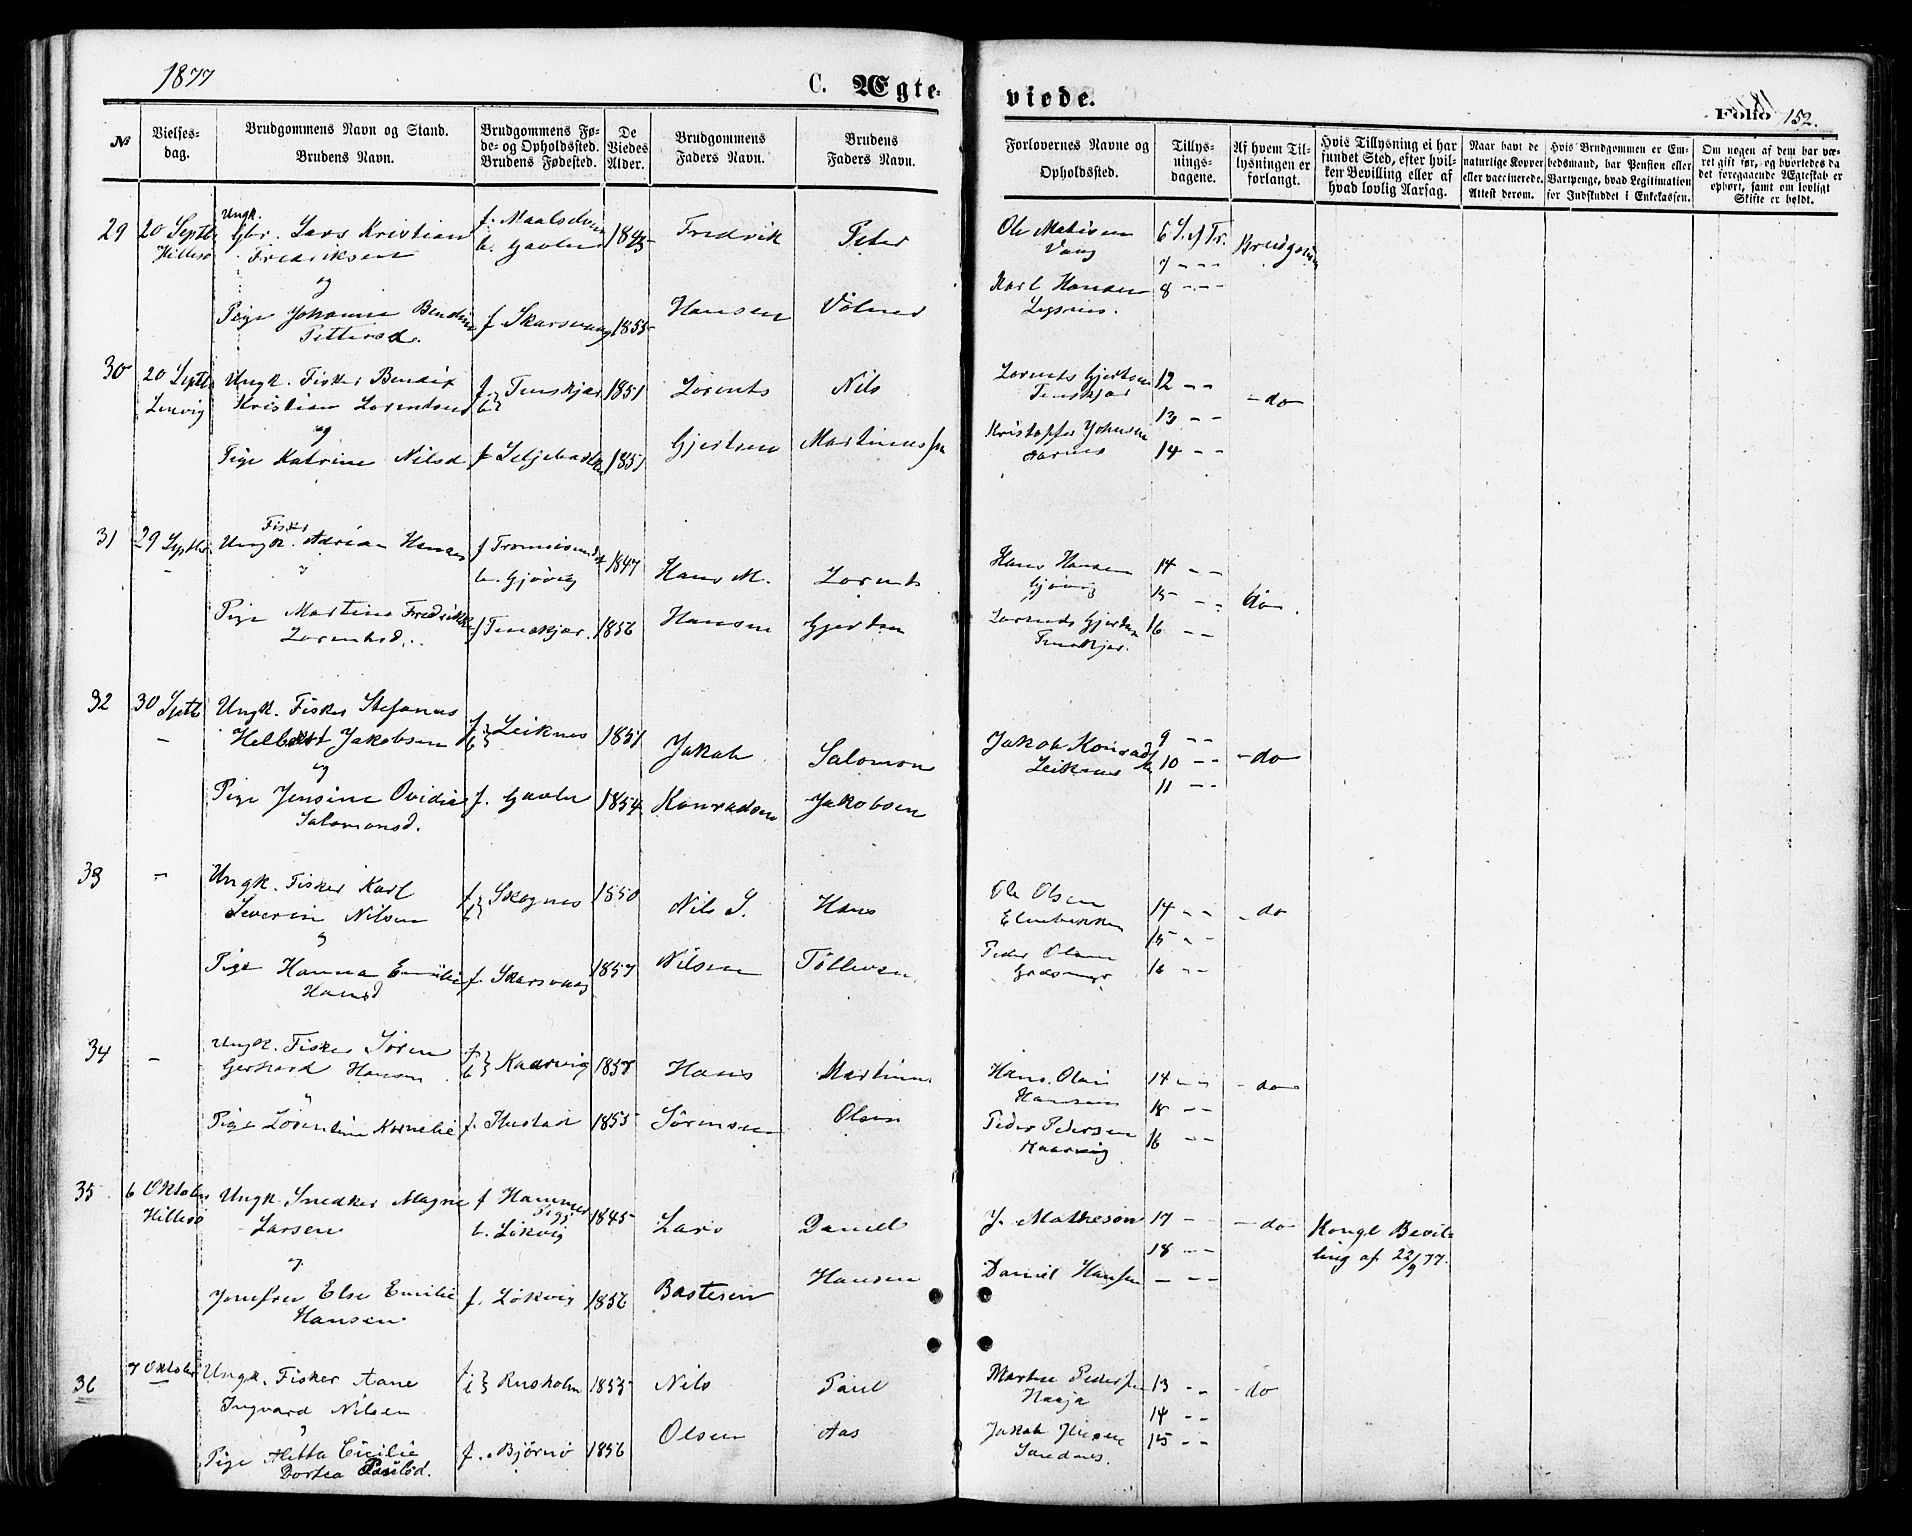 1877
C. Ægteviede.
Folio 152.
№
Vielses-
dag.
Brudgommens Navn og Stand.
Brudens Navn.
Brudgommens Fø-
de- og Opholdssted.
Brudens Fødested.
De
Viedes
Alder.
Brudgommens
Faders Navn.
Brudens
Faders Navn.
Forlovernes Navne og
Opholdssted.
Tillys-
nings-
dagene.
Af hvem Til-
lysningen er
forlangt.
Hvis Tillysning ei har
fundet Sted, efter hvil-
ken Bevilling eller af
hvad lovlig Aarsag.
Naar havt de
naturlige Kopper
eller vaccinerede.
Attest derom.
Hvis Brudgommen er Em-
bedsmand, har Pension eller
Vartpenge, hvad Legitimation
for Indskuddet i Enkekassen.
Om nogen af dem har væ-
ret gift før, og hvorledes da
det foregaaende Ægteskab er
ophørt, samt om lovligt
Skifte er holdt.
29
20 Septb
Hillesø
Ungk.
Gbr. Lars Kristian
Fredriksen
og
Pige Johanna Bendine
Pettersd.
f. Maalselven
b. Gavlen
f Skarsvaag
1845
1855
Fredrik
Hansen
Peter
Ole Matisen
Vang
Karl Hansen
6 S. ef Tr.
7 - - -
8 - - -
Brudgommen
30
20 Septb
Lenvig
Ungk. Fisker Bendix
Kristian Lorentsen
og
Pige Katrine Nilsd
f
b
Tennskjær
f
1851
1851
Lorents
Gjertsen
Nils
Martinussen
Lorents Gjertsen
Tennskjær
Kristoffer Johnsen
Aarnes
12 - -
13 - -
14 - -
- do -
31
29 Septbr
-
Fisker
Ungk. Adrian Hansen
Pige Martine Fredrikke
Lorentsd.
f Tromsøsundet
b. Gjøvig
f Tennskjær.
1847
1856
Hans M.
Hansen
Lorents
Gjertsen
Hans Hansen
Gjøvig
Lorents Gjertsen
Tennskjær.
14 - -
15 - -
16 - -
do.
32
30 Septb
-
Ungk. Fisker Stefanus
Helbert Jakobsen
og
Pige Jensine Ovidia
Salomonsd.
f
b
Leiknes
f. Gavlen
1851
1854
Jakob
Konradsen
Salomon
Jakobsen
Jakob Konradsen
Leiknes
9 - -
10 - -
11 - -
- do -
33
-
Ungk. Fisker Karl
Severin Nilsen
og
Pige Hanna Emilie
Hansd
f
b
Skognes
f. Skarsvaag
1850
1857
Nils S.
Nilsen
Hans
Tollevsen
Ole Olsen
Elvebakken
Peder Olsen
14 - -
15 - -
16 - -
- do
34
-
Ungk. Fisker Søren
Gerhard Hansen
Pige Lorentine Kornelie
f
b
Kaarvig
f.
1857
1855
Hans
Sørensen
Martinus
Olsen
Hans Olai
Hansen
Peder Pedersen
Kaarvig
14 - -
15 - -
16 - -
- do -
35
6 Oktober
Hillesø
Ungk. Snedker Magne
Larsen
og
Jomfru Else Emilie
Hansen
f Hammer
b. Løkvig
f. Løkvig
1845
1856
Lars
Bastesen
Daniel
Hansen
J. Matheson
Daniel Hansen
17 -
18 - -
- - -
- do
Kongl Bevil-
ling af 22/9 77.
36
7 Oktober
Ungk. Fisker Aane
Ingvard Nilsen
Pige Aletta Cicilie
Dortea Paulsd.
f
b
Russholm
f. Bjørnø
1855
1856
Nils
Olsen
Paul
Aas
Martin Pedersen
Haaja
Jakob Jensen
Sandnes
13 - -
14 - -
15 - -
- do